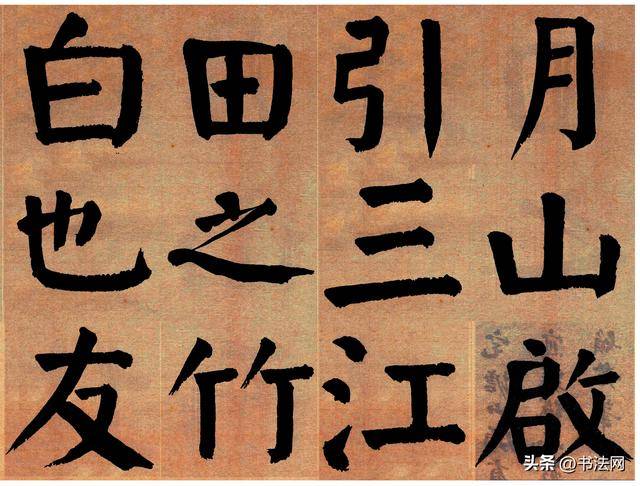 月山啟
引三江
田之竹
白也友
头条 @书法网